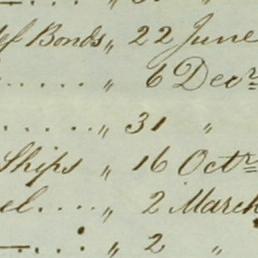 of Bonds „ 22 June
..... „ 6 Decr.
..... „ 31 „
Ships „ 16 Octr.
el.... „ 2 March
—..: „ 2 „